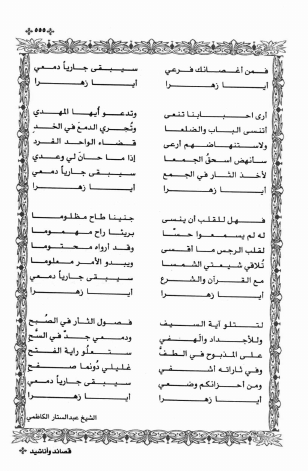 ٥٥٥
فمن أغصانك فرعي سيبقى جارياً دمعي
أيا زهرا أيا زهرا
أرى أحبابنا تنعى وتدعو أيها المهدي
أتنسى الباب والضلعا وتجري الدمع في الخد
ولاستنهاضهم أرعى قضاء الواحد الفرد
سأنهض اسحق الجمعا إذا ما حان لي وعدي
لأخذ الثار في الجمع سيبقى جارياً دمعي
أيا زهرا أيا زهرا
فهل للقلب أن ينسى جنينا طاح مظلوما
له لم يسمعوا حسّا بريئا راح مهموما
لقلب الرجس ما اقسى وقد أرواه محتوما
تلاقي شيعتي الشمسا ويبدو الأمر معلوما
مع القرآن والشرع سيبقى جارياً دمعي
أيا زهرا أيا زهرا
لتتلو آية السيف فصول الثار في الصبح
وللأجداد والهفي ودمعي جدّ في السّح
على المذبوح في الطف ستعلو راية الفتح
وفي ثاراته أشفي غليلي دونما صفح
ومن أحزانكم وضعي سيبقى جارياً دمعي
أيا زهرا أيا زهرا
الشيخ عبدالستار الكاظمي
قصائد وأناشيد